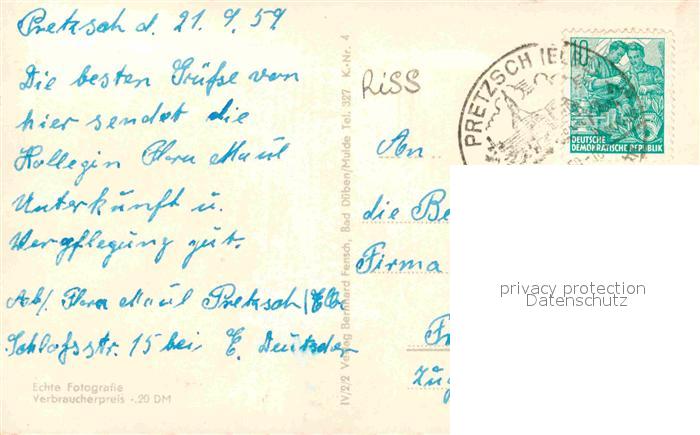 Pretzsch d. 21.9.59
Die besten Grüße von
hier sendet die
Kollegin Flora Maul
Unterkunft u.
Verpflegung gut.
Abs. Flora Maul Pretzsch/Elbe
Schloßstr. 15 bei E. Deutscher
Echte Fotografie
Verbraucherpreis -.20 DM
IV/2/2 Verlag Bernhard Fensch, Bad Düben/Mulde Tel. 327 K.-Nr. 4
RiSS
An
die Be
Firma
Fr
Zug
PRETZSCH (ELBE)
10
DEUTSCHE
DEMOKRATISCHE REPUBLIK
privacy protection
Datenschutz